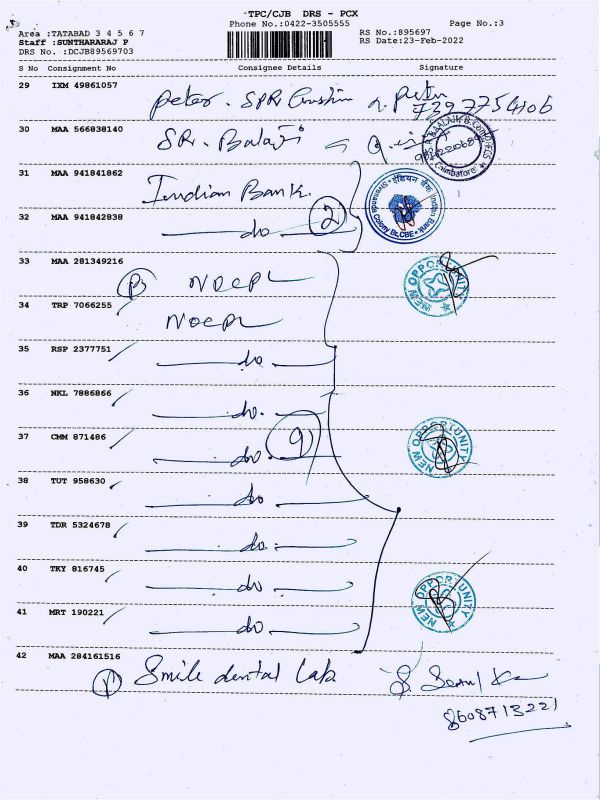 TPC/CJB DRS - PCX
Area :TATABAD 3 4 5 6 7
Phone No.:0422-3505555
Page No.:3
Staff :SUNTHARARAJ P
RS No.:895697
DRS No. :DCJB89569703
RS Date:23-Feb-2022
S No Consignment No Consignee Details Signature
29 IXM 49861057
Peter. SPR
7397754106
30 MAA 566838140
SR. Balaji
Coimbatore
31 MAA 941841862
Indian Bank.
इंडियन बैंक Indian Bank
Sivananda Colony BLCBE
32 MAA 941842838
do
2
33 MAA 281349216
P NOCPL
NEW OPPORTUNITY
34 TRP 7066255
NOCPL
35 RSP 2377751
do
36 NKL 7886866
do
37 CMM 871486
do
9
NEW OPPORTUNITY
38 TUT 958630
do
39 TDR 5324678
do
40 TKY 816745
do
NEW OPPORTUNITY
41 MRT 190221
do
42 MAA 284161516
Smile dental Lab
8608713221